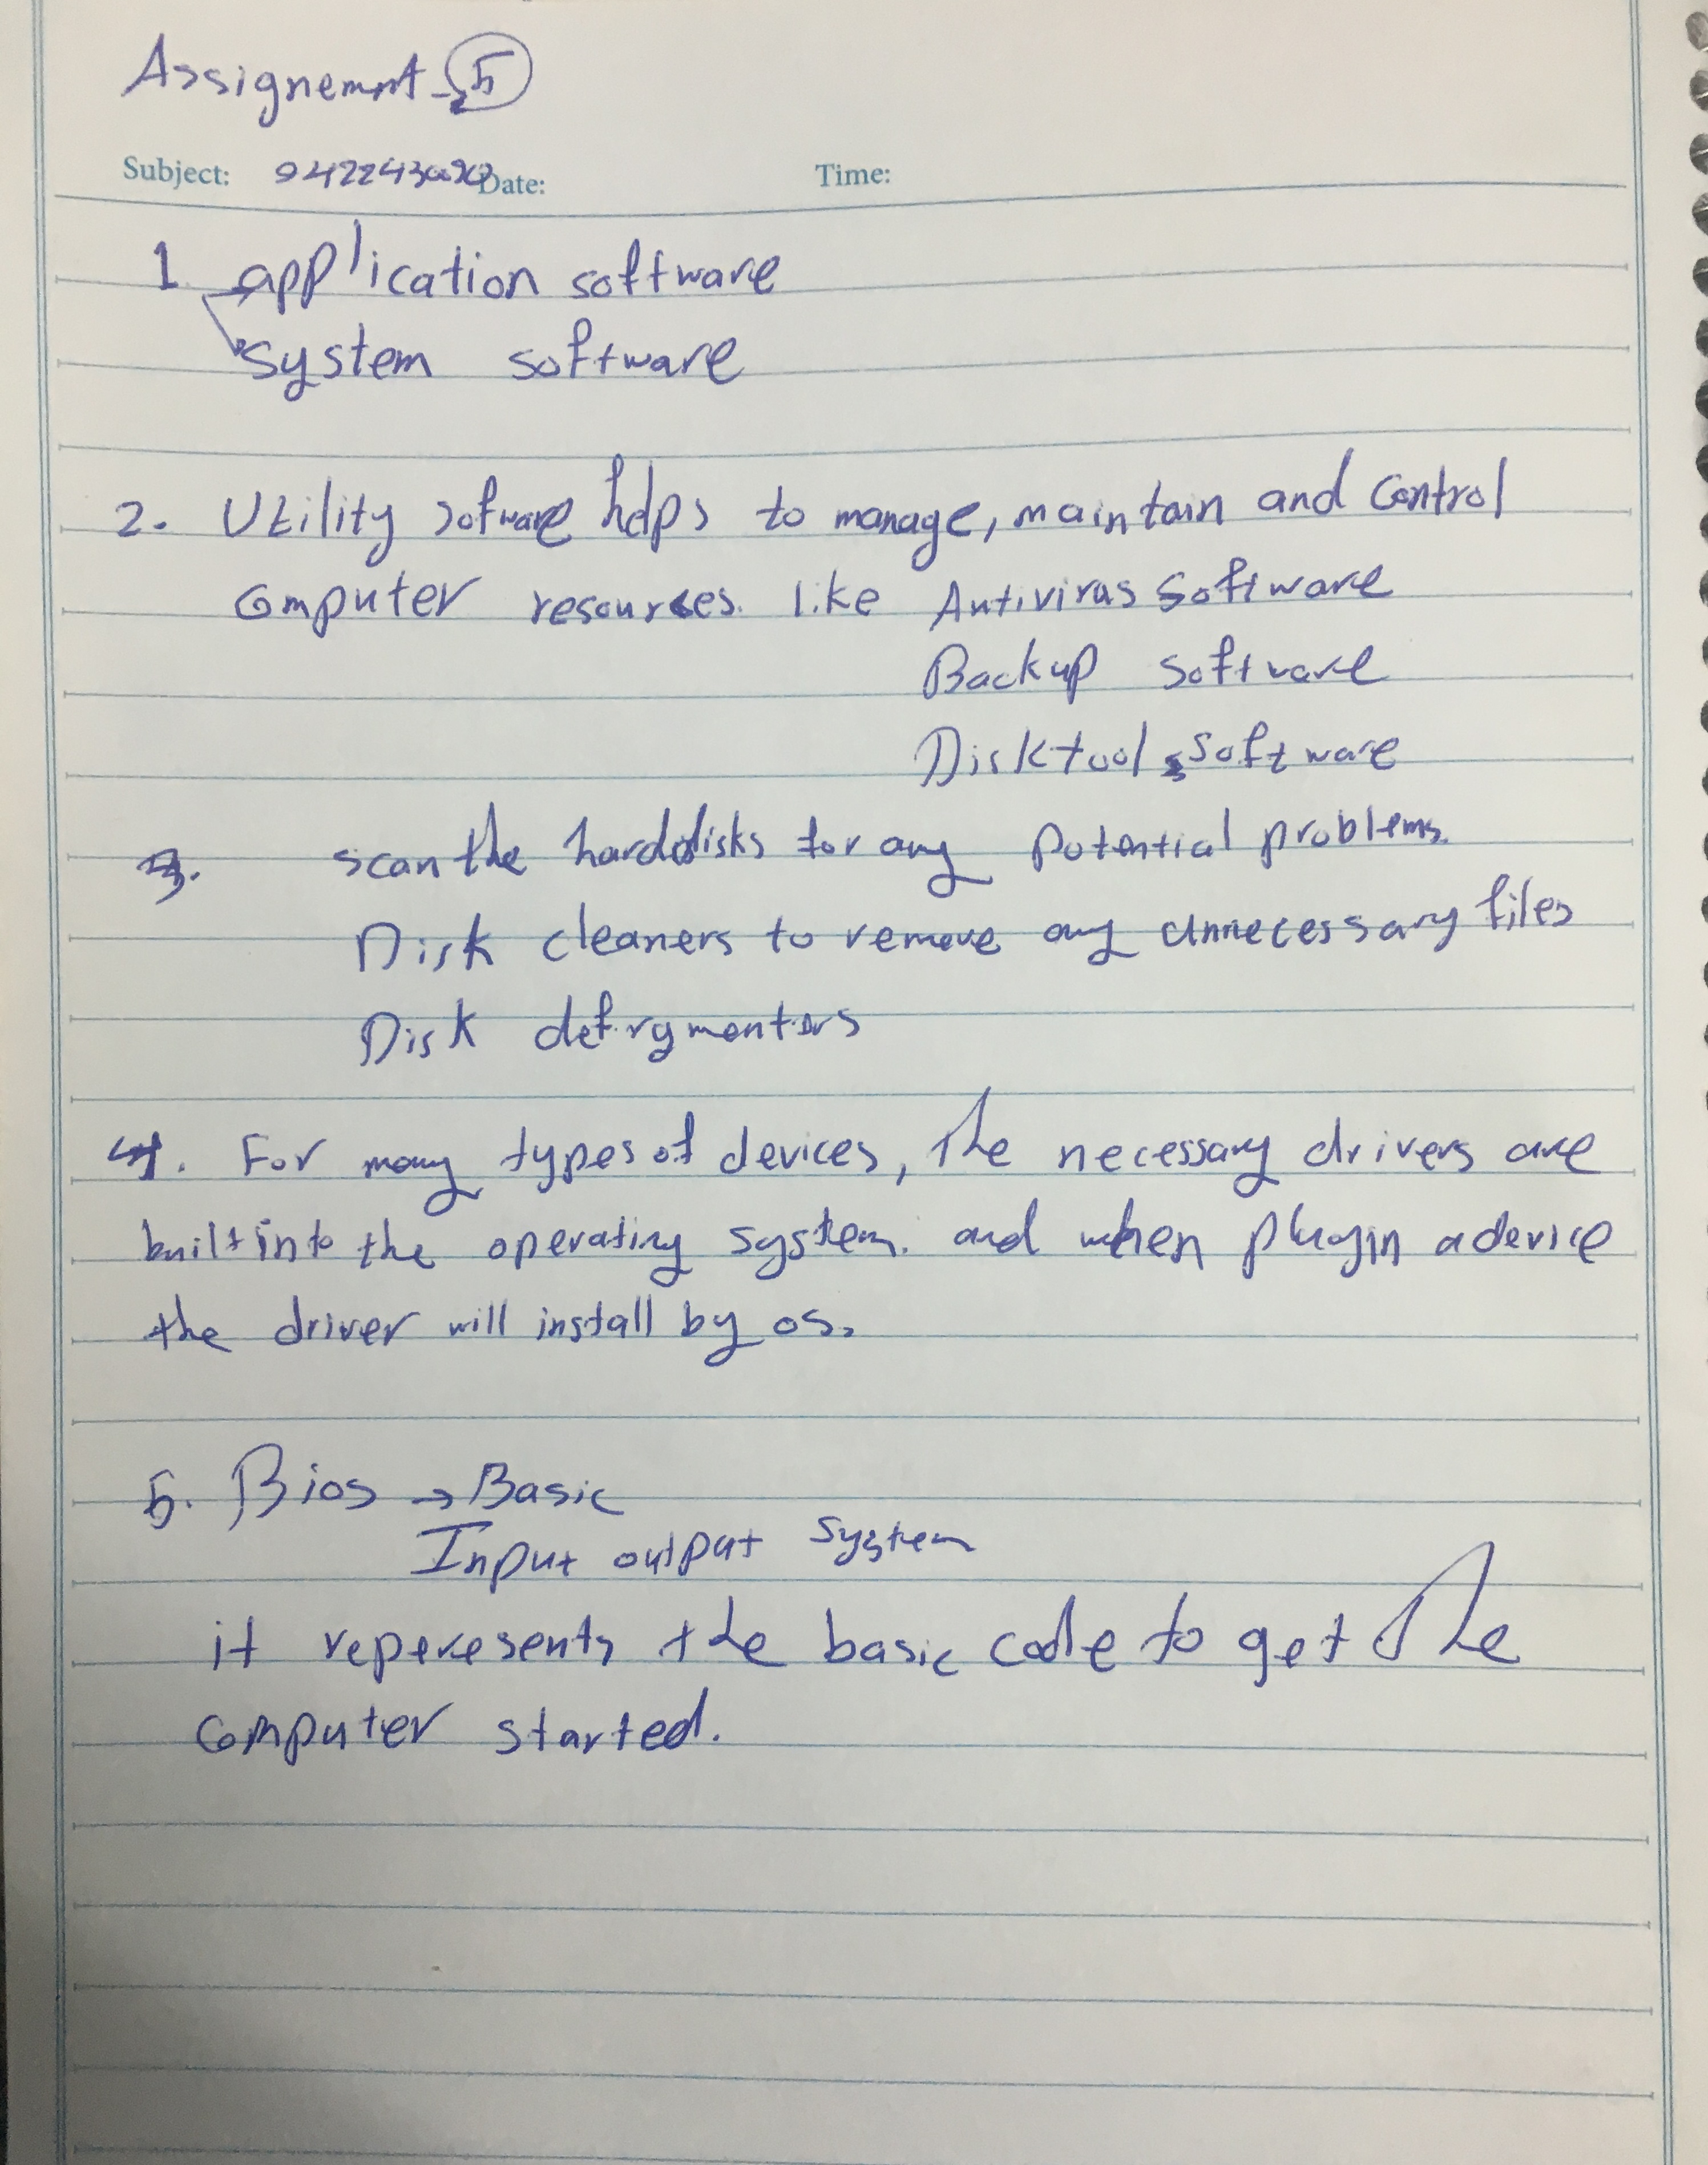 Assignemnt_5
Subject: Date: Time:
1 application software
system software
2. Utility sofware helps to manage, maintain and Control
Computer resources. like Antiviras Software
Backup software
Disktool software
3. scan the harddisks for any potential problems.
Disk cleaners to remove any unnecessary files
Disk
4. For many types of devices, the necessary drivers are
built into the operating system. and when plugin a device
the driver will install by os.
5. Bios → Basic
Input output system
it reperesents the basic code to get the
Computer started.